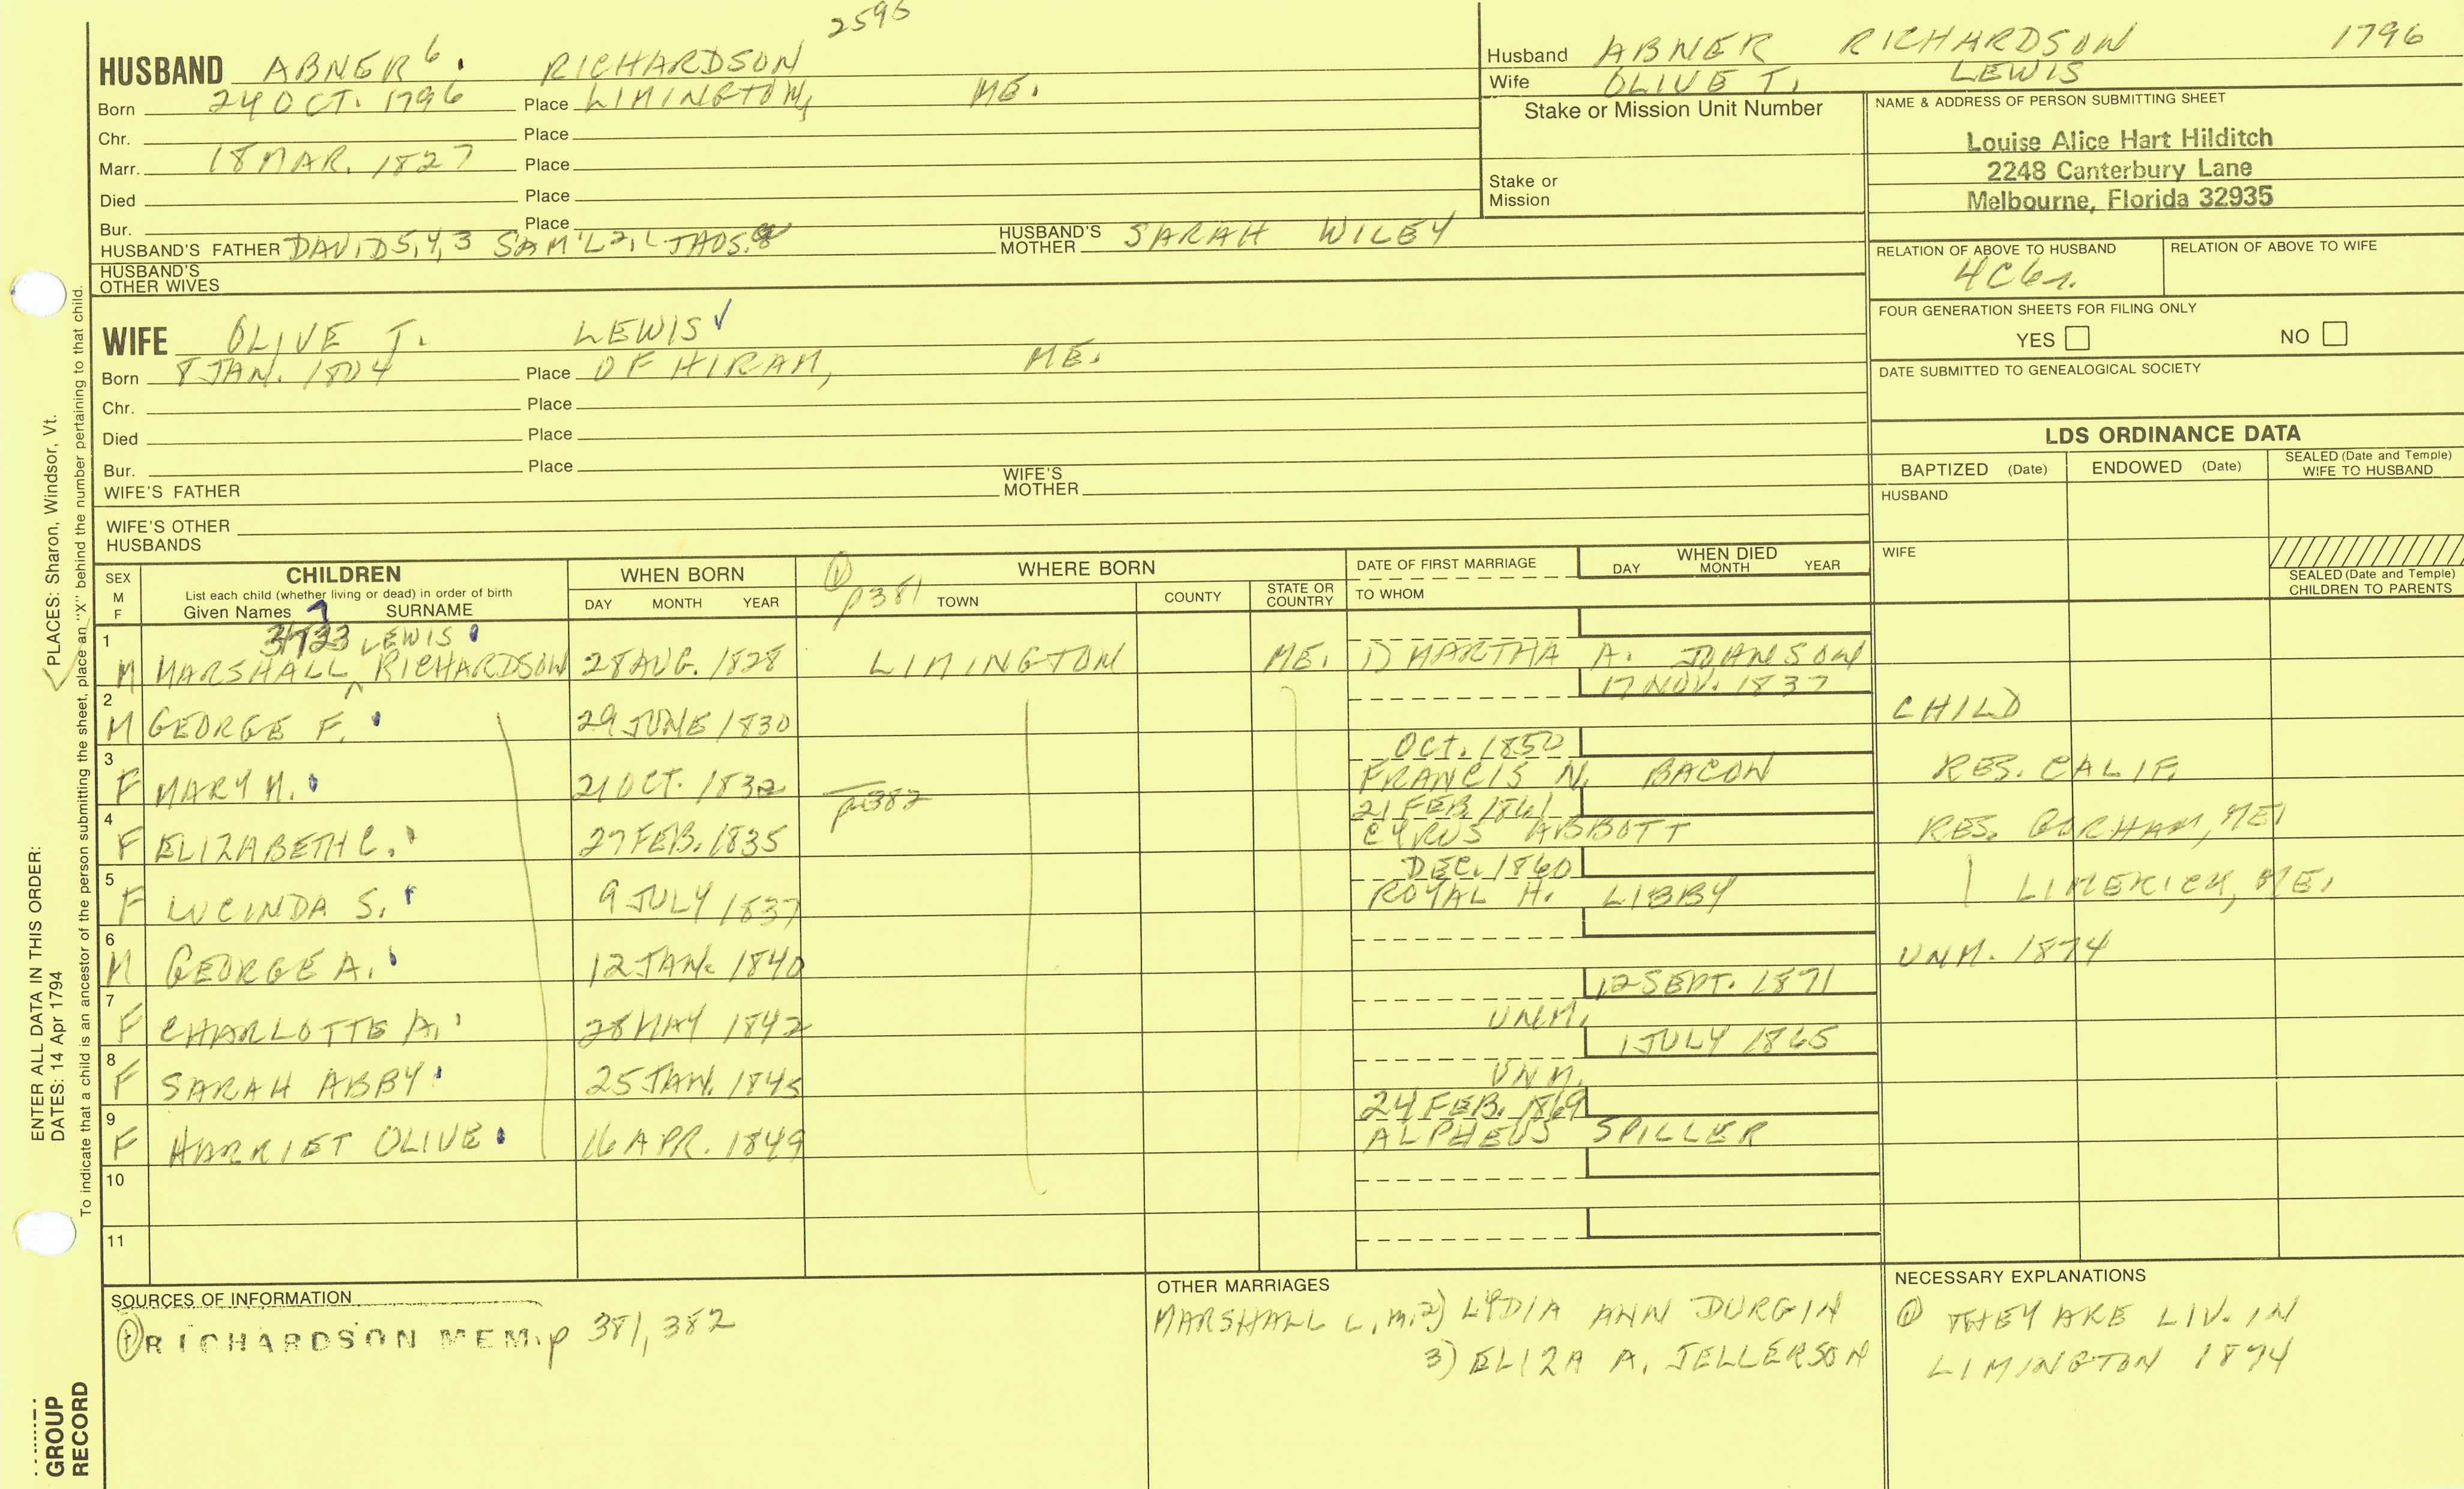 2596
HUSBAND ABNER 6. RICHARDSON
Born 24 OCT. 1796 Place LIMINGTON, ME.
Chr. Place
Marr. 18 MAR. 1827 Place
Died Place
Bur. Place
HUSBAND'S FATHER DAVID 5,4,3 SAM'L 2,1 HUSBAND'S MOTHER SARAH WILEY
HUSBAND'S OTHER WIVES
Husband ABNER RICHARDSON 1796
Wife OLIVE T. LEWIS
Stake or Mission Unit Number
Stake or Mission
NAME & ADDRESS OF PERSON SUBMITTING SHEET
Louise Alice Hart Hilditch
2248 Canterbury Lane
Melbourne, Florida 32935
RELATION OF ABOVE TO HUSBAND RELATION OF ABOVE TO WIFE
4C6r.
FOUR GENERATION SHEETS FOR FILING ONLY
YES NO
DATE SUBMITTED TO GENEALOGICAL SOCIETY
WIFE OLIVE T. LEWIS ✓
Born 8 JAN. 1804 Place OF HIRAM, ME.
Chr. Place
Died Place
Bur. Place
WIFE'S FATHER WIFE'S MOTHER
WIFE'S OTHER HUSBANDS
LDS ORDINANCE DATA
BAPTIZED (Date) ENDOWED (Date) SEALED (Date and Temple) WIFE TO HUSBAND
HUSBAND
WIFE
SEALED (Date and Temple) CHILDREN TO PARENTS
SEX M F
CHILDREN
List each child (whether living or dead) in order of birth
Given Names SURNAME
WHEN BORN
DAY MONTH YEAR
① p381
WHERE BORN
TOWN COUNTY STATE OR COUNTRY
DATE OF FIRST MARRIAGE
TO WHOM
WHEN DIED
DAY MONTH YEAR
1 LEWIS
M MARSHALL ^ RICHARDSON 28 AUG. 1828 LIMINGTON ME. 1) MARTHA A. JOHNSON
2 17 NOV. 1837
M GEORGE F. 29 JUNE 1830 CHILD
3 OCT. 1850
F MARY M. 21 OCT. 1832 FRANCIS N. BACON RES. CALIF.
p382
4 21 FEB. 1861
F ELIZABETH C. 27 FEB. 1835 CYRUS ABBOTT RES. GORHAM, ME.
5 DEC. 1860
F LUCINDA S. 9 JULY 1837 ROYAL H. LIBBY | LIMERICK, ME.
6
M GEORGE A. 12 JAN. 1840 UNM. 1874
7 12 SEPT. 1871
F CHARLOTTE A. 28 MAY 1842 UNM.
8 1 JULY 1865
F SARAH ABBY 25 JAN. 1845 UNM.
9 24 FEB. 1869
F HARRIET OLIVE 16 APR. 1849 ALPHEUS SPILLER
10
11
SOURCES OF INFORMATION
① RICHARDSON MEM. p 381, 382
OTHER MARRIAGES
MARSHALL L. m. 2) LYDIA ANN DURGIN
3) ELIZA A. JELLERSON
NECESSARY EXPLANATIONS
① THEY ARE LIV. IN
LIMINGTON 1874
ENTER ALL DATA IN THIS ORDER:
DATES: 14 Apr 1794
PLACES: Sharon, Windsor, Vt.
To indicate that a child is an ancestor of the person submitting the sheet, place an "X" behind the number pertaining to that child.
GROUP
RECORD